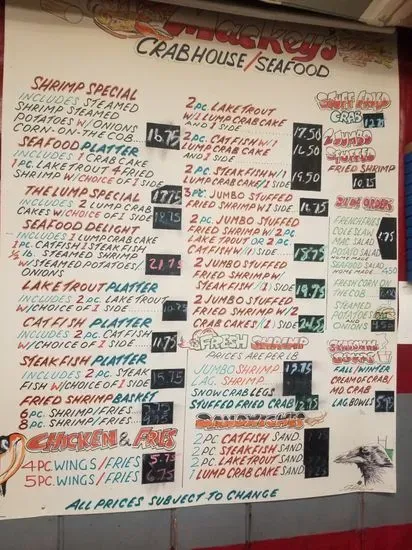 Mackey's
CRABHOUSE/SEAFOOD
SHRIMP SPECIAL
INCLUDES STEAMED
SHRIMP STEAMED
POTATOES W/ONIONS
CORN-ON-THE COB... 16.75
SEAFOOD PLATTER
INCLUDES 1 CRAB CAKE
1 PC. LAKE TROUT 4 FRIED
SHRIMP W/CHOICE OF 1 SIDE 17.75
THE LUMP SPECIAL
INCLUDES 2 LUMP CRAB
CAKES W/CHOICE OF 1 SIDE 18.75
SEAFOOD DELIGHT
INCLUDES 1 LUMP CRAB CAKE
1 PC. CATFISH 1 STEAKFISH
1/2 lb. STEAMED SHRIMP
W/STEAMED POTATOES/ 21.75
ONIONS
LAKE TROUT PLATTER
INCLUDES 2 PC. LAKE TROUT
W/CHOICE OF 1 SIDE
CATFISH PLATTER
INCLUDES 2 PC. CATFISH
W/CHOICE OF 1 SIDE 11.75
STEAK FISH PLATTER
INCLUDES 2 PC. STEAK
FISH W/CHOICE OF 1 SIDE 15.75
FRIED SHRIMP BASKET
6 PC. SHRIMP/FRIES...
8 PC. SHRIMP/FRIES...
CHICKEN & FRIES
4 PC. WINGS/FRIES 5.75
5 PC. WINGS/FRIES 6.75
2 PC. LAKE TROUT
W/1 LUMP CRAB CAKE
AND 1 SIDE 17.50
2 PC. CATFISH W/1
LUMP CRAB CAKE 16.50
AND 1 SIDE
2 PC. STEAKFISH W/1
LUMP CRAB CAKE/1 SIDE 19.50
3 PC. JUMBO STUFFED
FRIED SHRIMP W/1 SIDE
2 PC. JUMBO STUFFED
FRIED SHRIMP W/2 PC.
LAKE TROUT OR 2 PC.
CATFISH W/1 SIDE 18.75
2 JUMBO STUFFED
FRIED SHRIMP W/1
STEAKFISH/1 SIDE 19.75
2 JUMBO STUFFED
FRIED SHRIMP W/2
CRAB CAKES/1 SIDE 24.50
FRESH SHRIMP
PRICES ARE PER LB.
JUMBO SHRIMP
LRG. SHRIMP
SNOW CRAB LEGS
STUFFED FRIED CRAB
SANDWICHES
2 PC. CATFISH SAND
2 PC. STEAKFISH SAND
2 PC. LAKE TROUT SAND
1 LUMP CRAB CAKE SAND
STUFF FRIED
CRAB 12.75
JUMBO
STUFFED
FRIED SHRIMP
10.75
SIDE ORDERS
FRENCH FRIES
COLE SLAW
MAC SALAD
POTATO SALAD
HOME MADE
FRESH CORN ON
THE COB
STEAMED
POTATOES
ONIONS
FALL/WINTER
CREAM OF CRAB/
MD CRAB
LRG BOWLS 5.95
ALL PRICES SUBJECT TO CHANGE